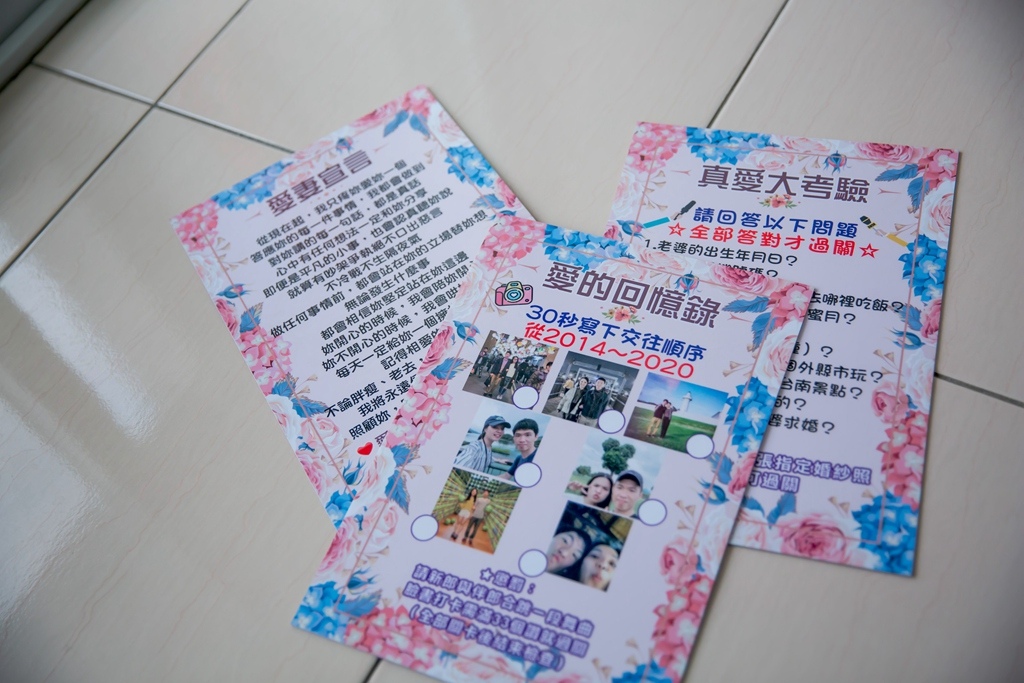 愛妻宣言
從現在起，我只疼妳愛妳一個
答應妳的每一件事情，我都會做到
對妳講的每一句話，都是真話
心中有任何想法一定和妳分享
即便是平凡的小事，也會認真聽妳說
就算有吵架爭執絕不口出惡言
不冷戰不生隔夜氣
做任何事情前，都會站在妳的立場替妳想
無論發生什麼事
都會相信妳堅定站在妳這邊
妳開心的時候，我會陪妳開
妳不開心的時候，我會哄
每天一定給妳一個擁
記得相愛的
不論胖瘦、老去、
我將永遠
照顧妳，
愛的回憶錄
30秒寫下交往順序
從2014～2020
★懲罰：
請新郎與伴郎合跳一段舞曲
臉書打卡集滿33個讚就過關
(全部關卡後結束檢查)
真愛大考驗
請回答以下問題
☆全部答對才過關☆
1.老婆的出生年月日？
去哪裡吃飯？
蜜月？
）？
個外縣市玩？
台南景點？
的？
婆求婚？
張指定婚紗照
可過關